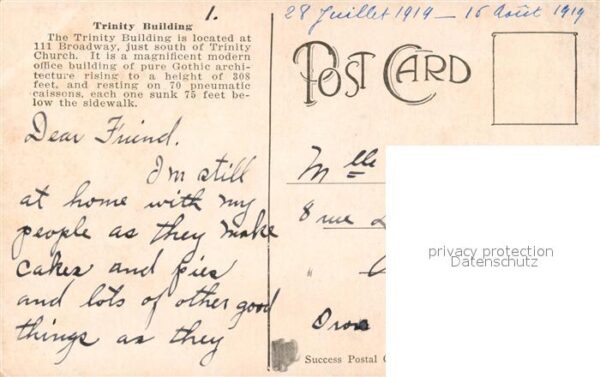 1.
28 Juillet 1919 — 16 Août 1919
Trinity Building
The Trinity Building is located at
111 Broadway, just south of Trinity
Church. It is a magnificent modern
office building of pure Gothic archi-
tecture rising to a height of 308
feet, and resting on 70 pneumatic
caissons, each one sunk 75 feet be-
low the sidewalk.
POST CARD
Dear Friend.
I'm still
at home with my
people as they make
cakes and pies
and lots of other good
things as they
Mlle
8 rue
"
privacy protection
Datenschutz
Success Postal